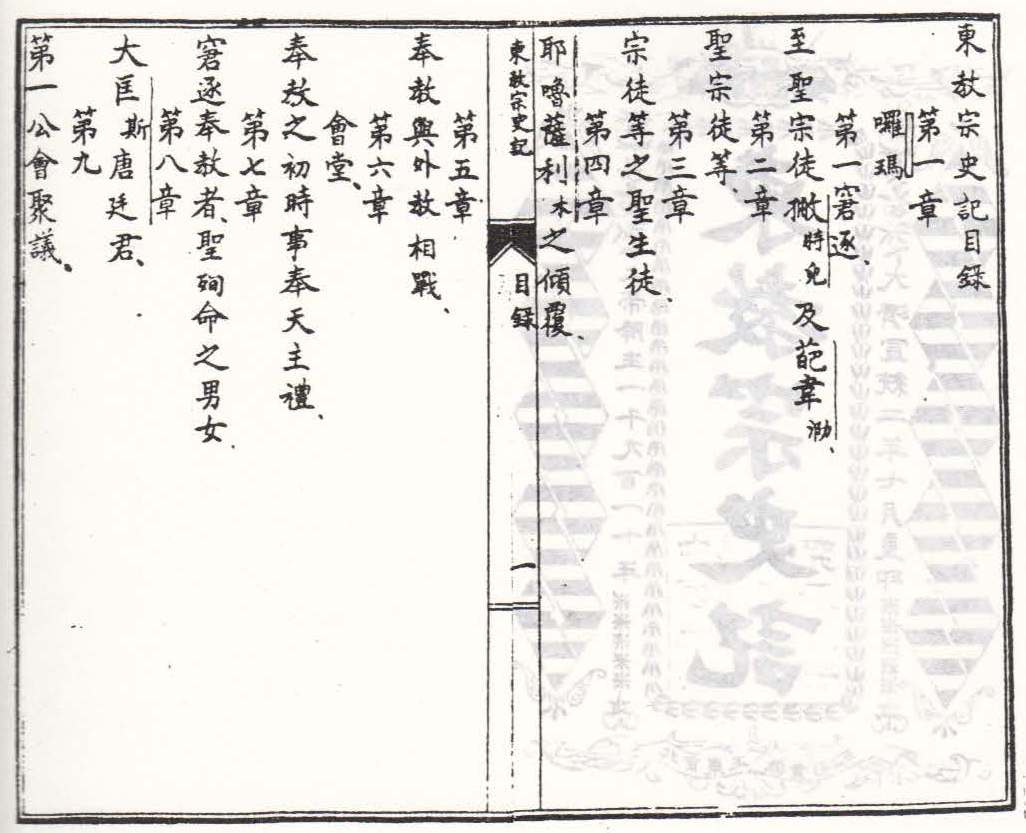 東教宗史記目錄
第一章
囉瑪
第一窘逐、
至聖宗徒撇時兒及葩韋泐、
第二章
聖宗徒等、
第三章
宗徒等之聖生徒、
第四章
耶嚕薩利木之傾覆、
東教宗史記 目錄 一
第五章
奉教與外教相戰、
第六章
會堂、
奉教之初時事奉天主禮、
第七章
窘逐奉教者、聖殉命之男女、
第八章
大匡斯唐廷君、
第九
第一公會聚議、